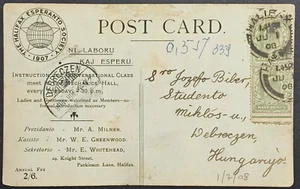 THE HALIFAX ESPERANTO SOCIETY
1907
POST CARD.
NI LABORU
KAJ ESPERU.
INSTRUCTION
CLASS
meet
HALL,
every
30 p.m.
Ladies and Gentlemen welcomed as Members—no
knowledge necessary
Prezidanto - Mr. A. MILNER.
Kasisto - Mr. W. E. GREENWOOD.
Sekretario - Mr. E. WHITEHEAD,
29, Knight Street,
Parkinson Lane, Halifax.
ANNUAL FEE
2/6.
DEBRECZEN
HALIFAX
JU 1
08
Sro Jozefo Biber,
Studento
Miklos-u,
Debreczen
Hungarujo.
1/7/08